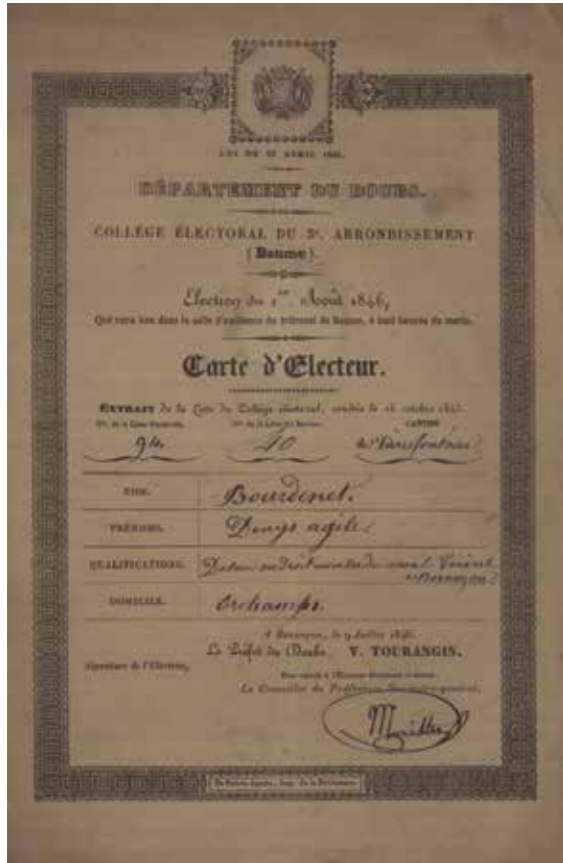 LOI DU 19 AVRIL 1831.
DÉPARTEMENT DU DOUBS.
COLLÉGE ÉLECTORAL DU 3e. ARRONDISSEMENT
(Baume).
Election du 1er. Août 1846,
Qui aura lieu dans la salle d'audience du tribunal de Baume, à huit heures du matin.
Carte d'Electeur.
EXTRAIT de la Liste du Collége électoral, arrêtée le 16 octobre 1845.
CANTON
94 40 de
NOM. Bourdenet.
PRÉNOMS. Denys agile
QUALIFICATIONS. Docteur en Droit
DOMICILE. Orchamps.
A Besançon, le 9 Juillet 1846.
Le Préfet du Doubs V. TOURANGIN.
Signature de l'Electeur,
Le Conseiller de Préfecture